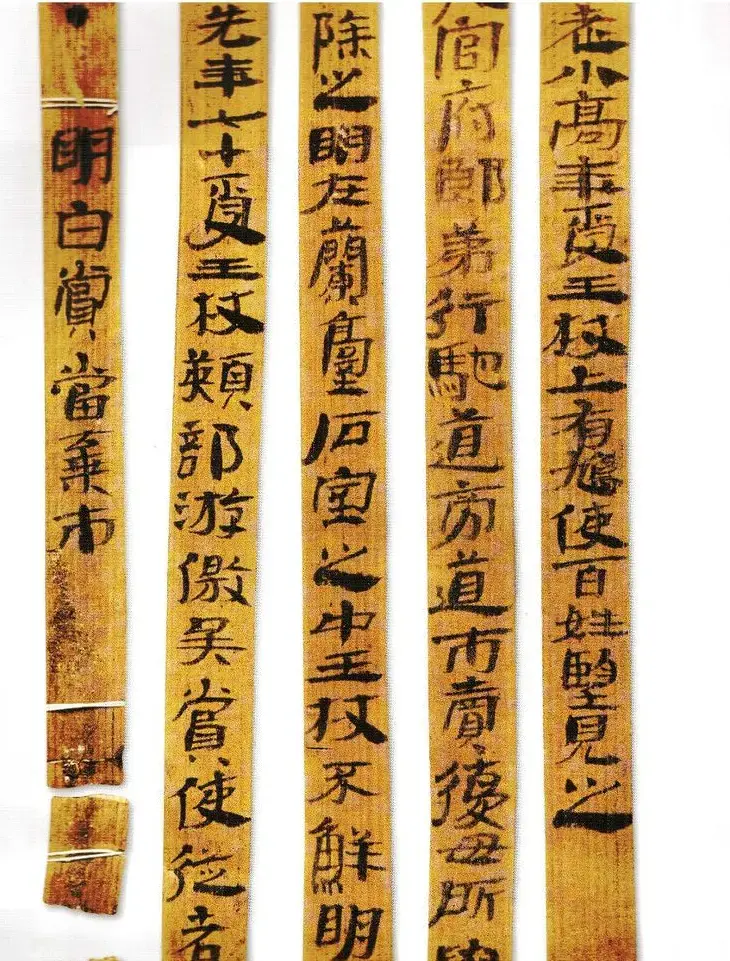 老小高年受王杖上有鳩使百姓望見之
官府節弟行馳道旁道市賣復毋所
除之明在蘭臺石室之中王杖不鮮明
先年七十受王杖熲部游徼吳賞使從者
明白賞當棄市